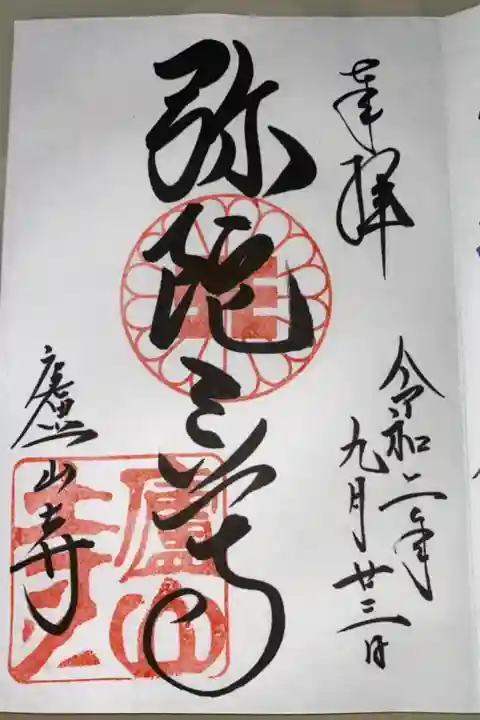 奉拝
令和二年
九月廿三日
弥陀三尊
廬山寺
廬山寺